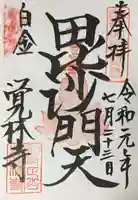 奉拝
令和元年
七月二十三日
毘沙門天
白金
覚林寺